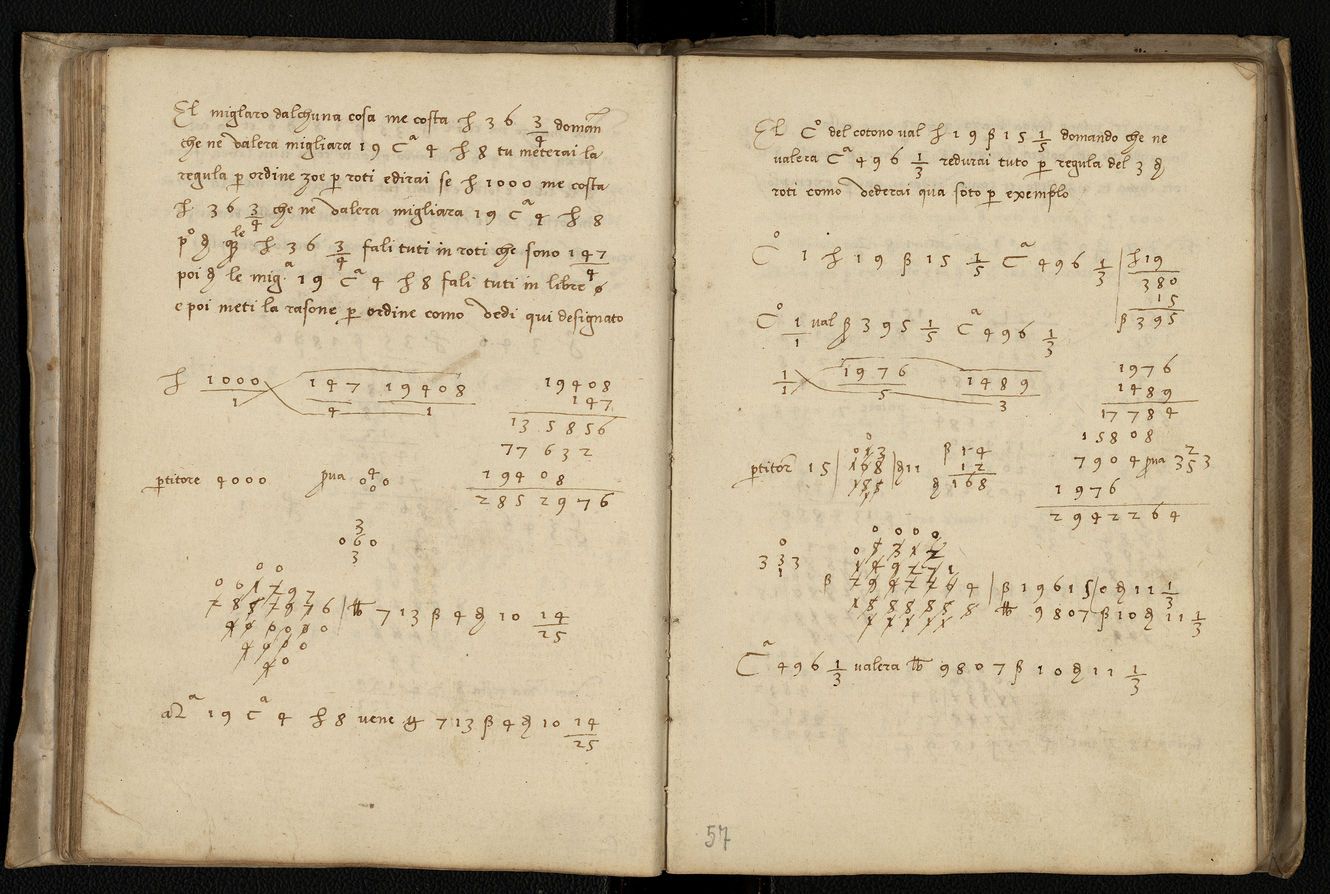 El miglaro dalchuna cosa me costa ℔ 3 6 3/4 doman
che ne valera migliara 1 9 Cᵃ 4 ℔ 8 tu meterai la
regula p ordine zoe p roti edirai se ℔ 1 0 0 0 me costa
℔ 3 6 3/4 che ne valera migliara 1 9 Cᵃ 4 ℔ 8
pº le ℔ 3 6 3/4 fali tuti in roti che sono 147/4
poi le mig.ᵃ 1 9 Cᵃ 4 ℔ 8 fali tuti in libre
e poi meti la rasone p ordine como vedi qui designato
℔ 1000/1 147/4 19408/1
19408
147
135856
77632
19408
2852976
ptitore 4000 pva 0 4 0 0
3
0 6 0
3
℔ 713 β 4 10 14/25
19 Cᵃ 4 ℔ 8 vene 713 β 4 10 14/25
El Cº del cotono val ℔ 1 9 β 1 5 1/5 domando che ne
valera Cᵃ 4 9 6 1/3 redurai tuto p regula del 3
roti como vederai qua soto p exemplo
Cº 1 ℔ 1 9 β 1 5 1/5 Cᵃ 4 9 6 1/3
℔ 19
380
15
β 395
Cº 1/1 val β 3 9 5 1/5 Cᵃ 4 9 6 1/3
1/1 1976/5 1489/3
1976
1489
17784
15808
7904 pva 3 2/5 3
1976
2942264
ptitor 15
168
11
β 14
12
168
0
3 3 3
1
β 196150 11 1/3
℔ 9807 β 10 11 1/3
Cᵃ 4 9 6 1/3 valera ℔ 9 8 0 7 β 1 0 1 1 1/3
57